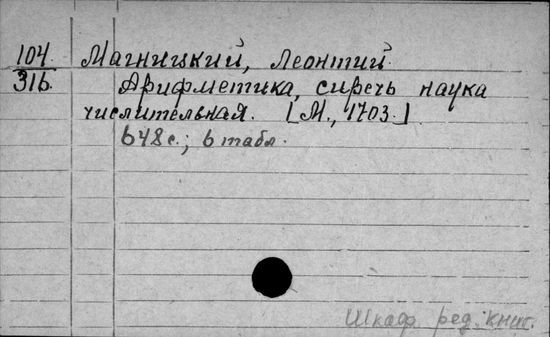 104
316.
Магницкий, Леонтий
Арифметика, сиречь наука
числительная. [М., 1703.]
648 с.; 6 табл.
Шкаф. ред. книг.